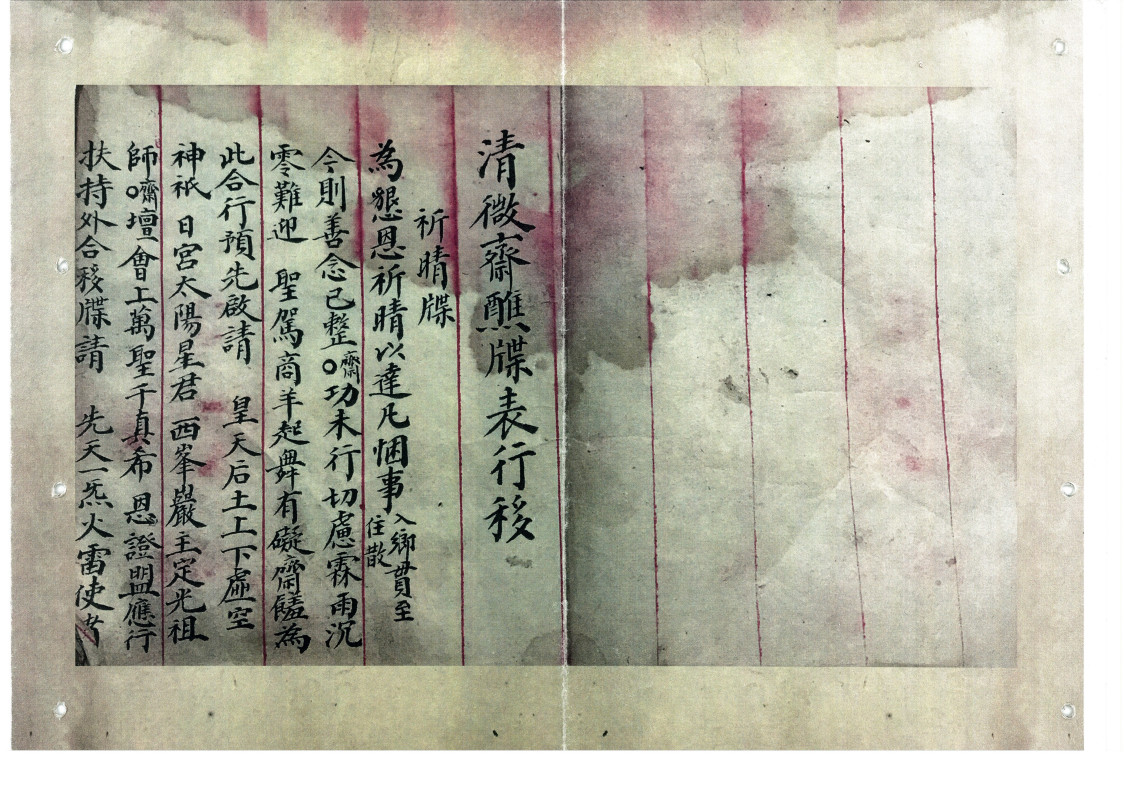 清微齋醮牒表行移
祈晴牒
為懇恩祈晴以達凡悃事入鄉貫至住散
今則善念已整○齋功未行切慮霖雨沉
零難迎 聖駕商羊起舞有礙齋饈為
此合行預先啟請 皇天后土上下虛空
神祇 日宮太陽星君 西峯巖主定光祖
師○齋壇會上萬聖千真希恩證盟應行
扶持外合移牒請 先天一炁火雷使者